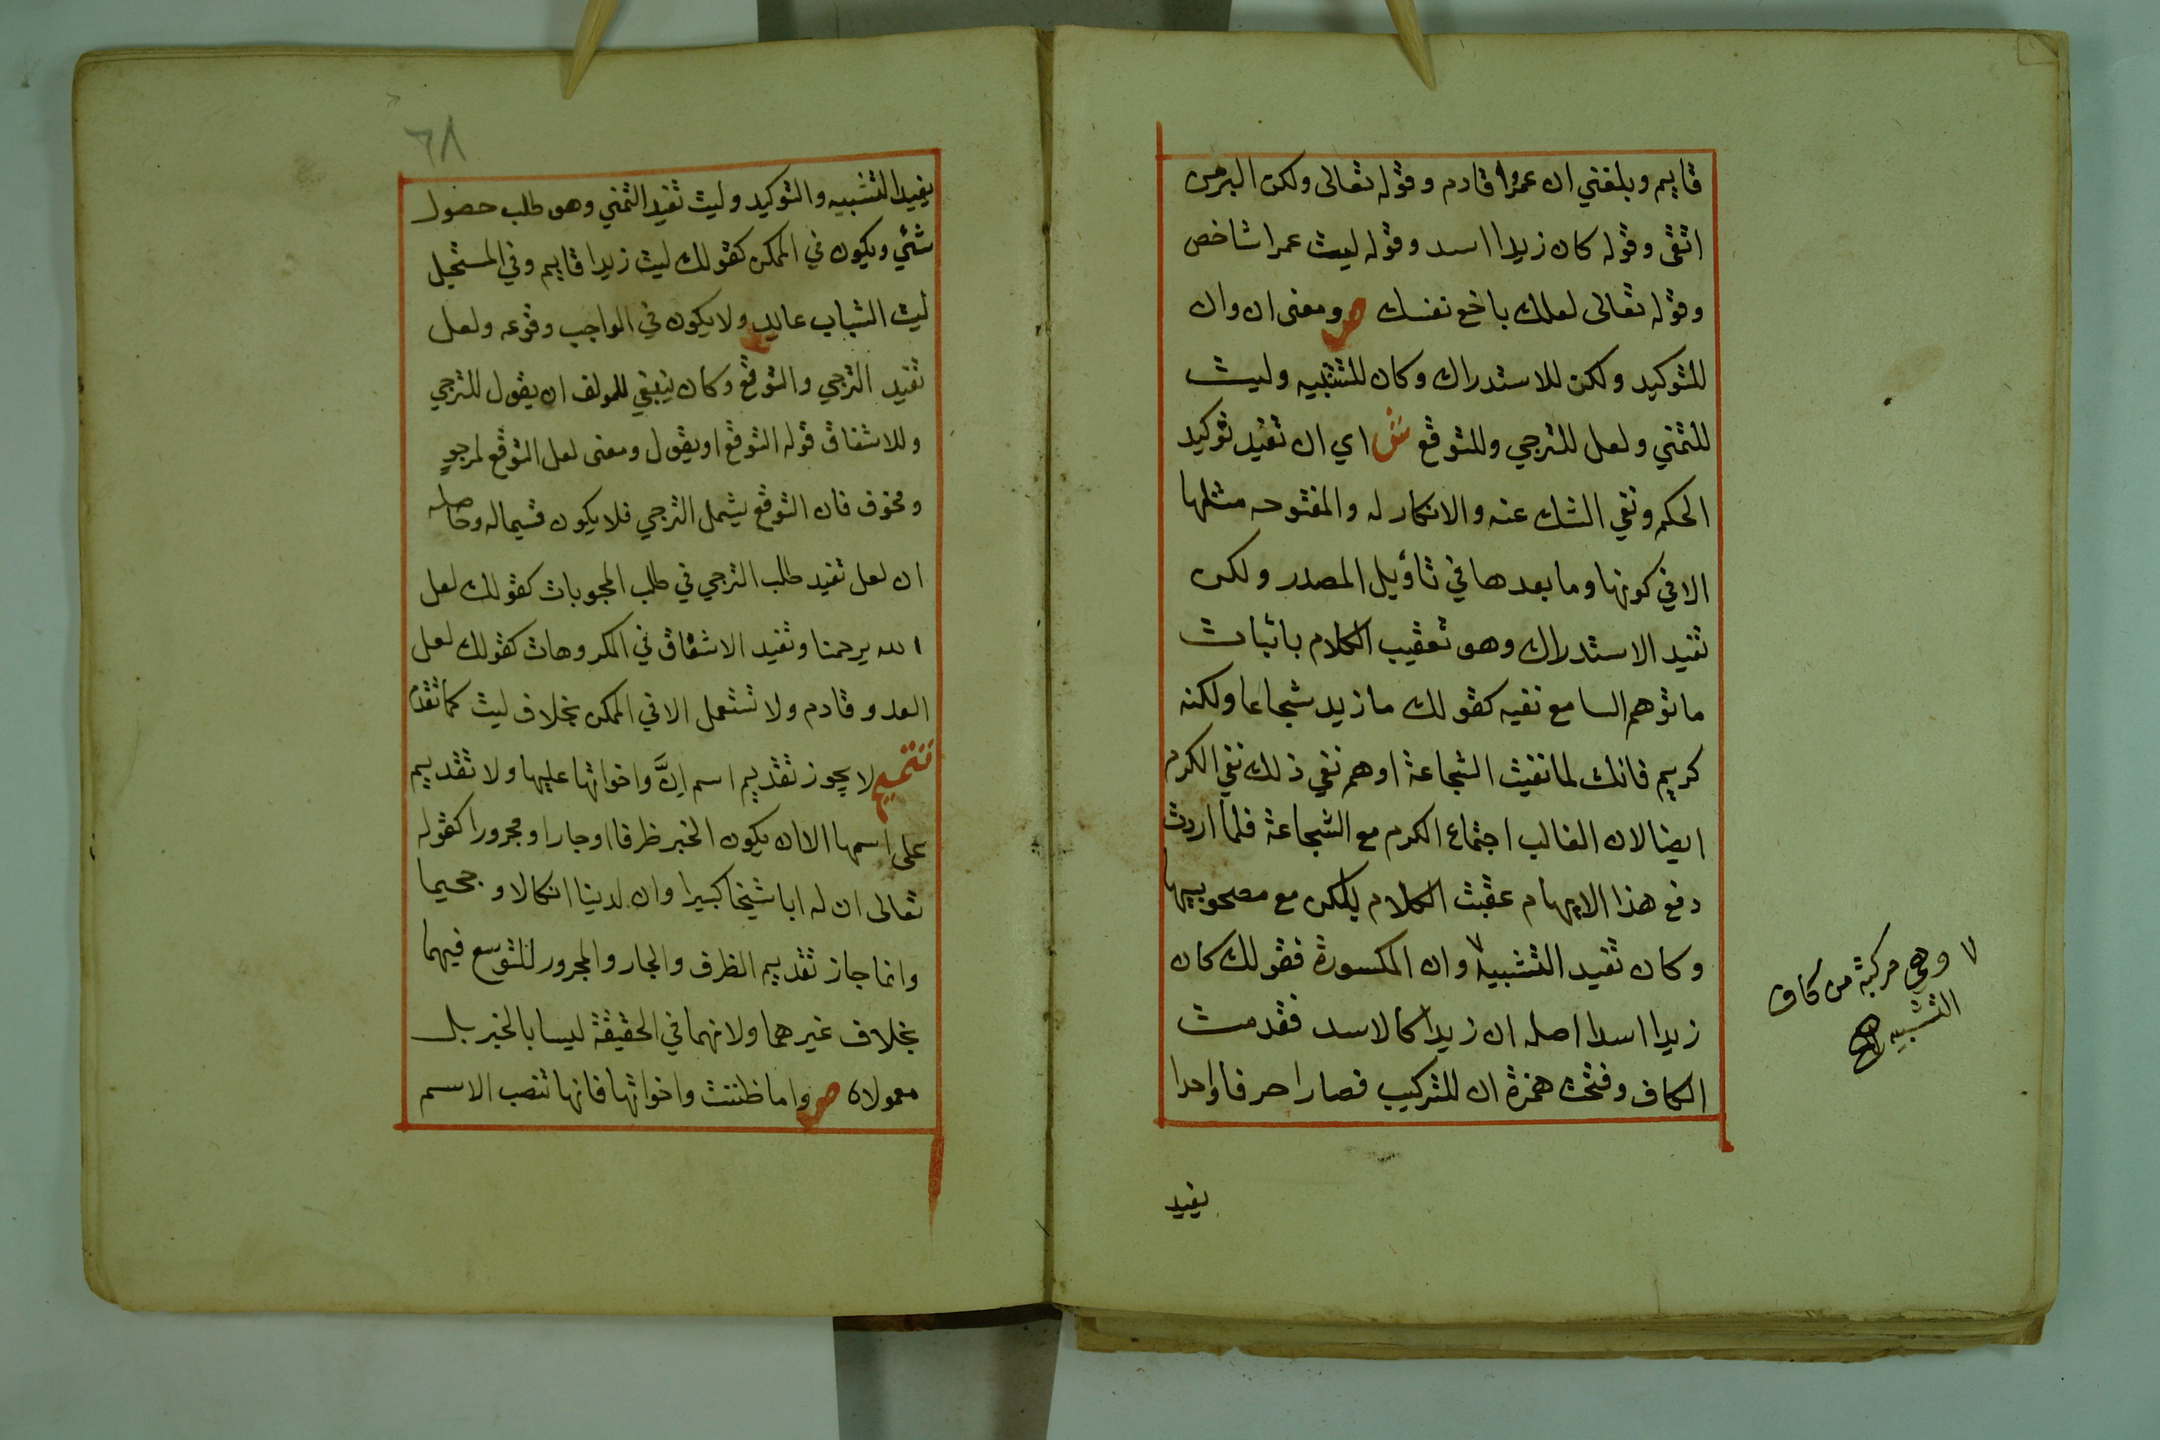 قايم وبلغني ان عمروا قادم وقوله تعالى ولكن البر من
اتقى وقوله كان زيدا اسد وقوله ليت عمرا شاخص
وقوله تعالى لعلك باخع نفسك ص ومعنى ان وان
للتوكيد ولكن للاستدراك وكان للتشبيه وليت
للتمني ولعل للترجي وللتوقع ش اي ان تفيد توكيد
الحكم ونفي الشك عنه والانكار له والمفتوحه مثلها
الا في كونها وما بعدها في تاؤيل المصدر ولكن
تفيد الاستدراك وهو تعقيب الكلام باثبات
ما توهم السامع نفيه كقولك ما زيد شجاعا ولكنه
كريم فانك لما نفيت الشجاعة اوهم نفي ذلك نفي الكرم
ايضا لان الغالب اجتماع الكرم مع الشجاعة فلما اردت
دفع هذا الايهام عقبت الكلام بلكن مع مصحوبيها
وكان تفيد التشبيه ٧ وان المكسورة فقولك كان
زيدا اسدا اصله ان زيدا كالاسد فقدمت
الكاف وفتحت همزة ان للتركيب فصارا حرفا واحدا
يفيد
٧ وهي مركبة من كاف
التشبيه
٦٨
يفيد التشبيه والتوكيد وليت تفيد التمني وهو طلب حصول
شئي ويكون في الممكن كقولك ليت زيدا قايم وفي المستحيل
ليت الشباب عايد ولا يكون في الواجب وقوعه ولعل
تفيد الترجي والتوقع وكان ينبغي للمولف ان يقول للترجي
وللاشفاق قوله التوقع او يقول ومعنى لعل التوقع لمرجو
ومخوف فان التوقع يشمل الترجي فلا يكون قسيما له وحاصله
ان لعل تفيد طلب الترجي في طلب المحبوبات كقولك لعل
الله يرحمنا وتفيد الاشفاق في المكروهات كقولك لعل
العدو قادم ولا تستعمل الا في الممكن بخلاف ليت كما تقدم
تتميم لا يجوز تقديم اسم انَّ واخواتها عليها ولا تقديم
على اسمها الا ان يكون الخبر ظرفا او جارا ومجرورا كقوله
تعالى ان له ابا شيخا كبيرا وان لدينا انكالا وجحيما
وانما جاز تقديم الظرف والجار والمجرور للتوسع فيهما
بخلاف غيرهما ولانهما في الحقيقة ليسا بالخبر بل
معمولاه ص واما ظننت واخواتها فانها تنصب الاسم